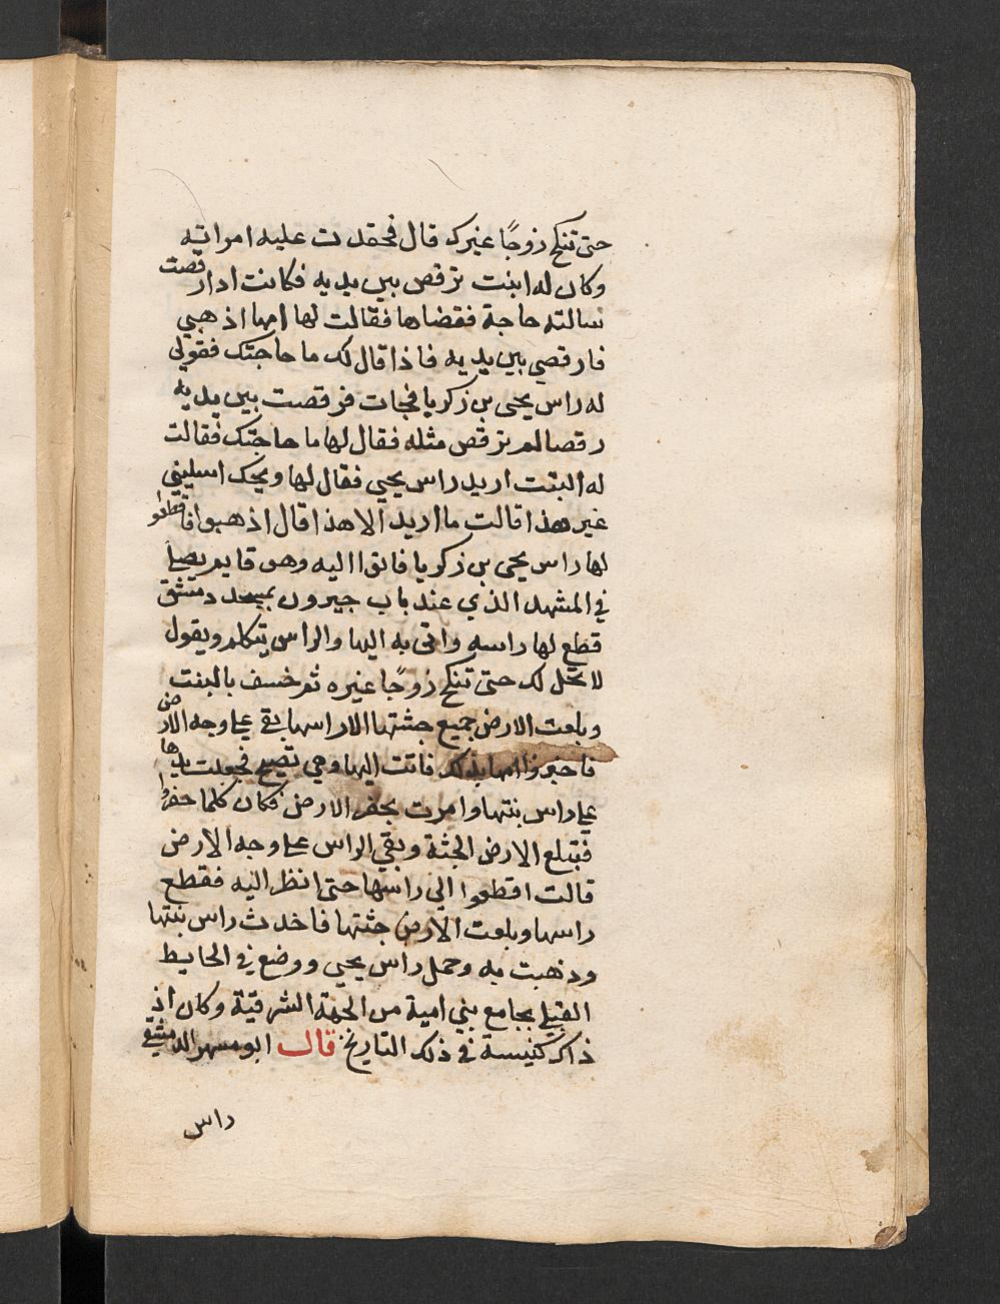 حتى تنكح زوجًا غيرك قال فحقدت عليه امراته
وكان له ابنت ترقص بين يديه فكانت ادا رقصت
سالته حاجة فقضاها فقالت لها امها اذهبي
فارقصي بين يديه فاذا قال لك ما حاجتك فقولي
له راس يحيى بن زكريا فجات فرقصت بين يديه
رقصا لم ترقص مثله فقال لها ما حاجتك فقالت
له البنت اريد راس يحيي فقال لها ويحك اسليني
غير هذا قالت ما اريد الا هذا قال اذهبوا فاقطعوا
لها راس يحيى بن زكريا فاتوا اليه وهو قايم يصلي
في المشهد الذي عند باب جيرون بمسجد دمشق
قطع لها راسه واتى به اليها والراس يتكلم ويقول
لا تحل لك حتى تنكح زوجًا غيره ثم خسف بالبنت
وبلعت الارض جميع جثتها الا راسها بقي على وجه الارض
فاخبروا امها بذلك فاتت اليها وهي تصيح فجعلت يدها
على راس بنتها وامرت بحفر الارض فكان كلما حفروا
فتبلع الارض الجثة وبقي الراس على وجه الارض
قالت اقطعوا الي راسها حتى انظر اليه فقطع
راسها وبلعت الارض جثتها فاخدث راس بنتها
ودهبت به وحمل راس يحيي ووضع في الحايط
القبلي بجامع بني امية من الجهة الشرقية وكان اذ
ذاك كنيسة في ذلك التاريخ قال ابو مسهر الدمشقي
راس